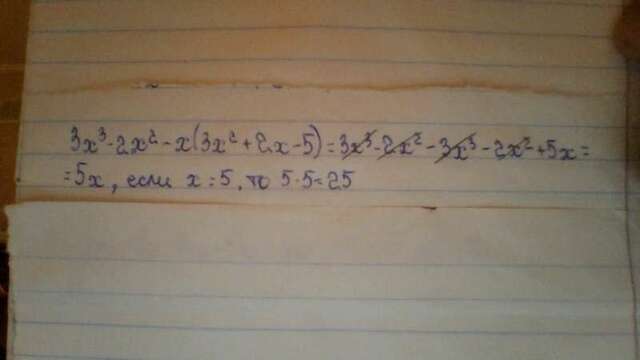 3x³-2x²-x(3x²+2x-5)=3x³-2x²-3x³-2x²+5x=
=5x, если x=5, то 5·5=25